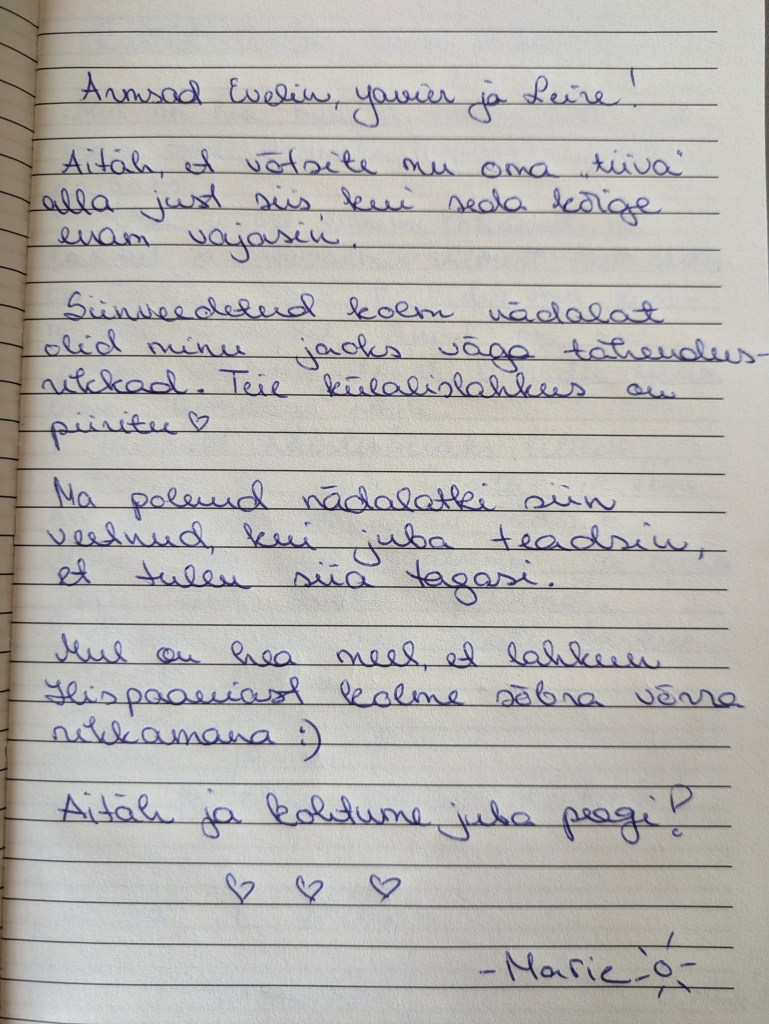 Armsad Evelin, yavier ja Leire!
Aitäh, et võtsite mu oma „tiiva"
alla just siis kui seda kõige
enam vajasin.
Siinveedetud kolm nädalat
olid minu jaoks väga tähendus-
rikkad. Teie külalislahkus on
piiritu ♡
Ma polnud nädalatki siin
veetnud, kui juba teadsin,
et tulen siia tagasi.
Mul on hea meel, et lahkun
Hispaaniast kolme sõbra võrra
rikkamana :)
Aitäh ja kohtume juba peagi!
♡ ♡ ♡
- Marie